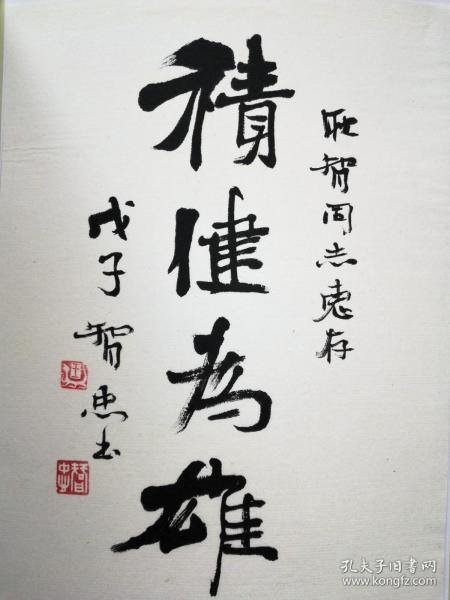 耿智同志惠存
積健为雄
戊子 智忠书
孔夫子旧书网
www.kongfz.com